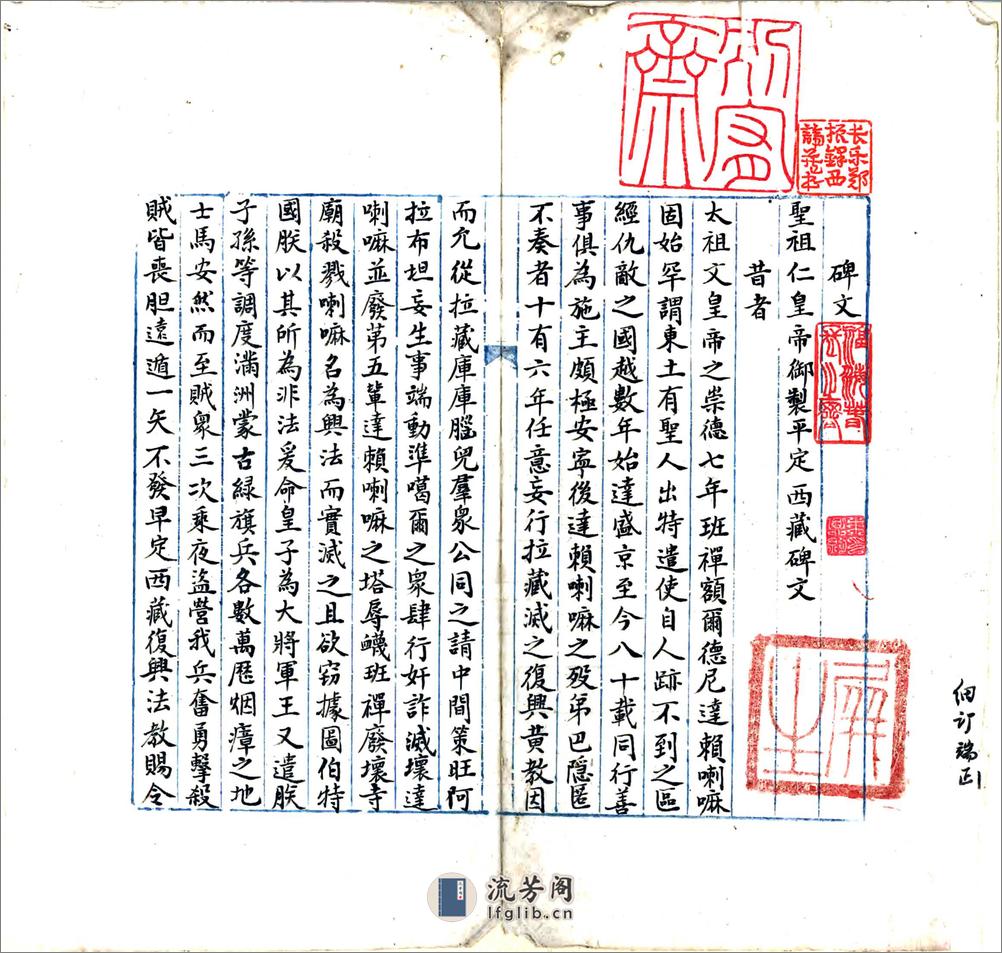 碑文
聖祖仁皇帝御製平定西藏碑文
昔者
太祖文皇帝之崇德七年班禪額爾德尼達賴喇嘛
固始罕謂東土有聖人出特遣使自人跡不到之區
經仇敵之國越數年始達盛京至今八十載同行善
事俱為施主頗極安寧後達賴喇嘛之歿弟巴隱匿
不奏者十有六年任意妄行拉藏滅之復興黃教因
而允從拉藏庫庫腦兒羣衆公同之請中間策旺阿
拉布坦妄生事端動準噶爾之衆肆行奸詐滅壞達
喇嘛並廢第五輩達賴喇嘛之塔辱衊班禪廢壞寺
廟殺戮喇嘛名為興法而實滅之且欲窃據圖伯特
國朕以其所為非法爰命皇子為大將軍王又遣朕
子孫等調度滿洲蒙古緑旗兵各數萬歷烟瘴之地
士馬安然而至賊衆三次乘夜盜營我兵奮勇擊殺
賊皆喪胆遠遁一矢不發早定西藏復興法教賜令
长乐郑
振铎西
諦藏书
细订瑞正
流芳阁
lfglib.cn